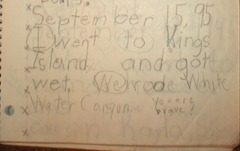 September 15, 95
I went to Kings
Island and got
wet. We rode White
Water Canyon. You are
brave!